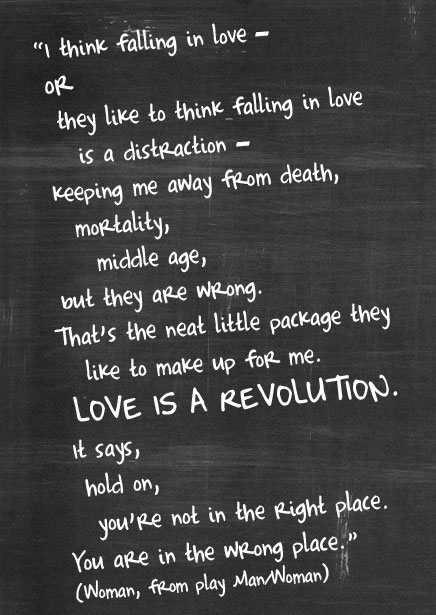 "I think falling in love –
OR
they like to think falling in love
is a distraction –
keeping me away from death,
mortality,
middle age,
but they are wrong.
That's the neat little package they
like to make up for me.
LOVE IS A REVOLUTION.
It says,
hold on,
you're not in the right place.
You are in the wrong place."
(Woman, from play Man/Woman)